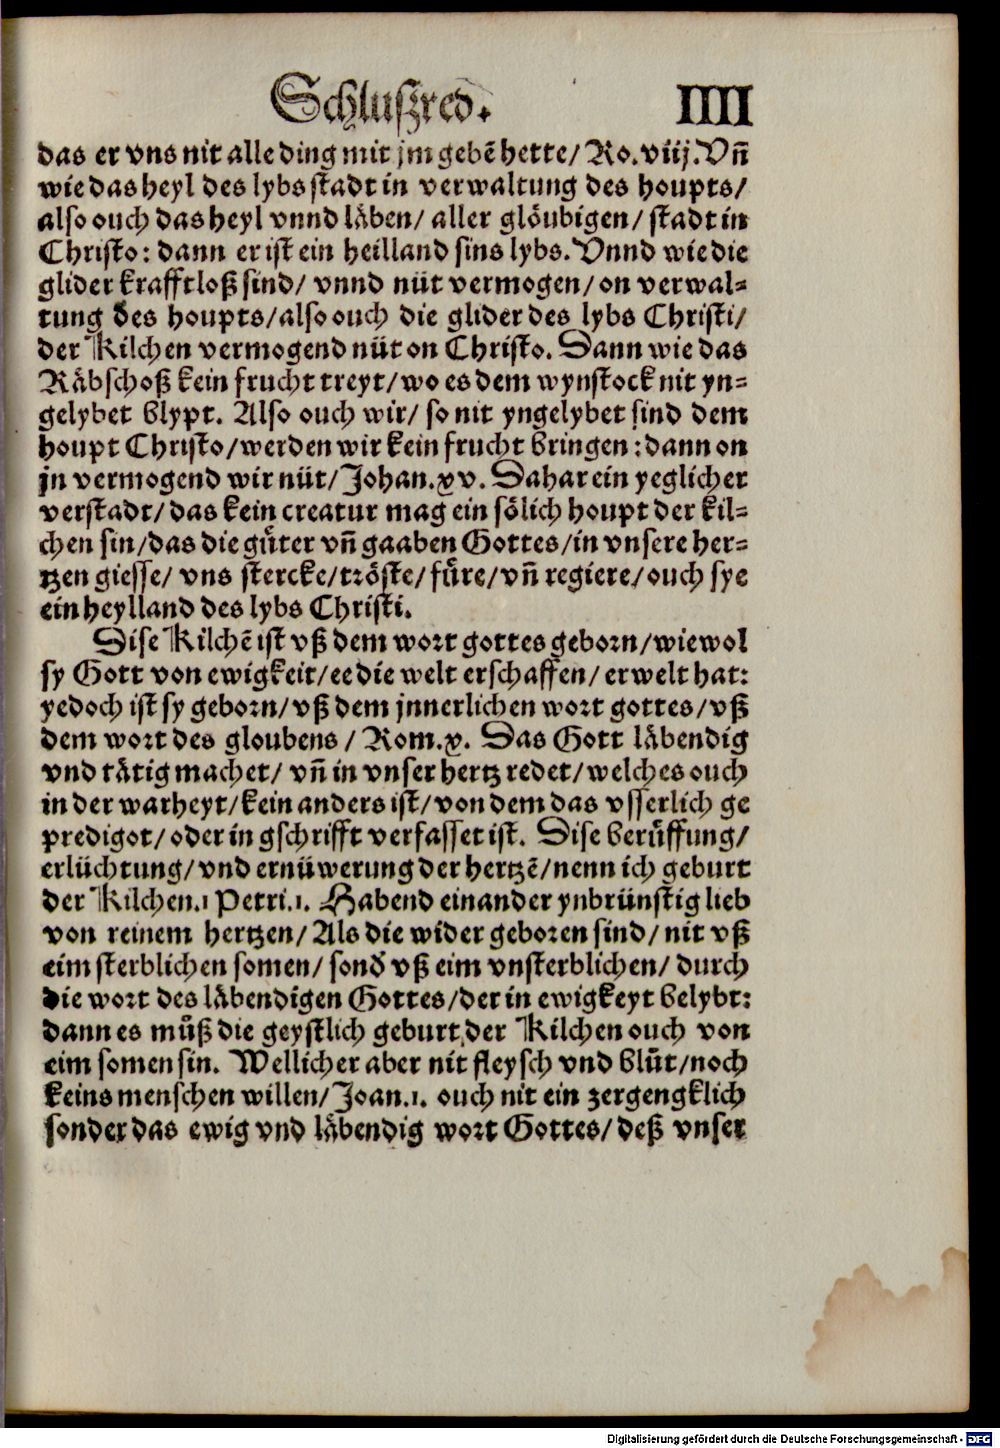 Schluſzred. IIII
das er vns nit alle ding mit jm gebē hette/ Ro.viij. Vñ
wie das heyl des lybs ſtadt in verwaltung des houpts/
alſo ouch das heyl vnnd läben/ aller glöubigen/ ſtadt in
Chriſto: dann er iſt ein heilland ſins lybs. Vnnd wie die
glider krafftloß ſind/ vnnd nüt vermogen/ on verwal⸗
tung des houpts/ alſo ouch die glider des lybs Chriſti/
der Kilchen vermogend nüt on Chriſto. Dann wie das
Räbſchoß kein frucht treyt/ wo es dem wynſtock nit yn⸗
gelybet blypt. Alſo ouch wir/ ſo nit yngelybet ſind dem
houpt Chriſto/ werden wir kein frucht bringen: dann on
jn vermogend wir nüt/ Johan.xv. Dahar ein yeglicher
verſtadt/ das kein creatur mag ein ſölich houpt der kil⸗
chen ſin/ das die guͤter vñ gaaben Gottes/ in vnſere her⸗
tzen gieſſe/ vns ſtercke/ tröſte/ fuͤre/ vñ regiere/ ouch ſye
ein heylland des lybs Chriſti.
Diſe Kilchē iſt vß dem wort gottes geborn/ wiewol
ſy Gott von ewigkeit/ ee die welt erſchaffen/ erwelt hat:
yedoch iſt ſy geborn/ vß dem jnnerlichen wort gottes/ vß
dem wort des gloubens/ Rom.x. Das Gott läbendig
vnd tätig machet/ vñ in vnſer hertz redet/ welches ouch
in der warheyt/ kein anders iſt/ von dem das vſſerlich ge
prediget/ oder in gſchrifft verfaſſet iſt. Diſe beruͤffung/
erlüchtung/ vnd ernüwerung der hertzē/ nenn ich geburt
der Kilchen.1 Petri.1. Habend einander ynbrünſtig lieb
von reinem hertzen/ Als die wider geboren ſind/ nit vß
eim ſterblichen ſomen/ ſond̛ vß eim vnſterblichen/ durch
die wort des läbendigen Gottes/ der in ewigkeyt belybt:
dann es muͦß die geyſtlich geburt der Kilchen ouch von
eim ſomen ſin. Wellicher aber nit fleyſch vnd bluͦt/ noch
keins menſchen willen/ Joan.1. ouch nit ein zergengklich
ſonder das ewig vnd läbendig wort Gottes/ deß vnſer
Digitalisierung gefördert durch die Deutsche Forschungsgemeinschaft - DFG